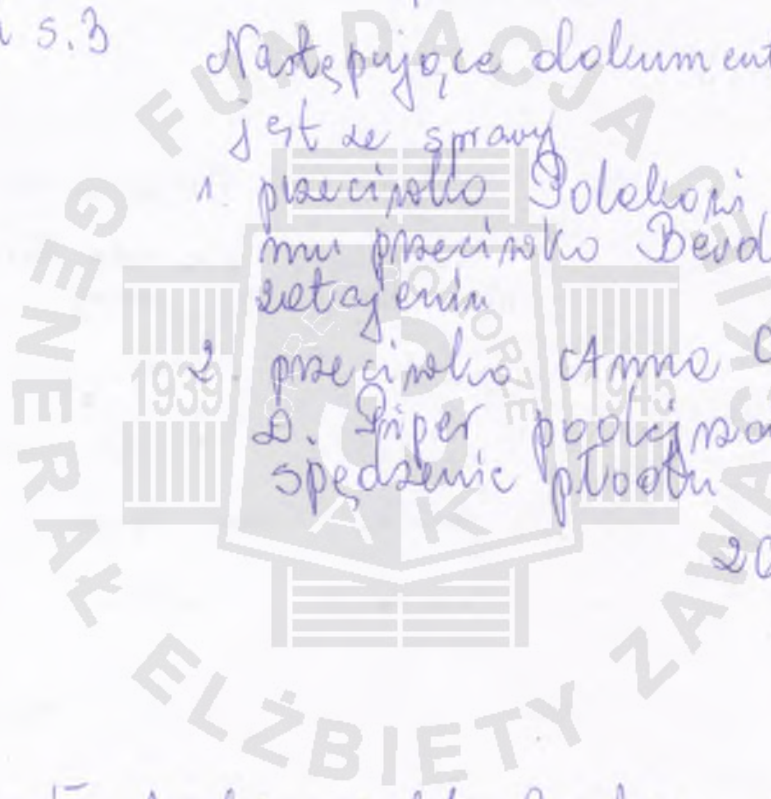 s. 3
Następujące dokument
jest ze sprawy
1. przeciwko Polakowi
mu przeciwko Berd
zatajeniu
2. przeciwko Anna
D. Piper podejrza
spędzenie płodu
20
FUNDACJA GENERAŁ ELŻBIETY ZAWACKIEJ
1939 1945
OKRĘG POMORZE
AK